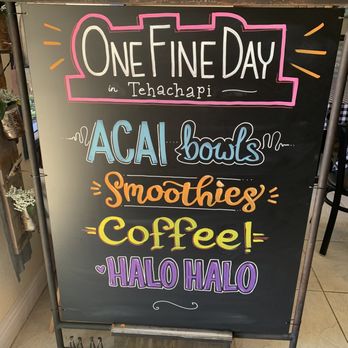 ONE FINE DAY
in Tehachapi
ACAI bowls
Smoothies
Coffee!
HALO HALO